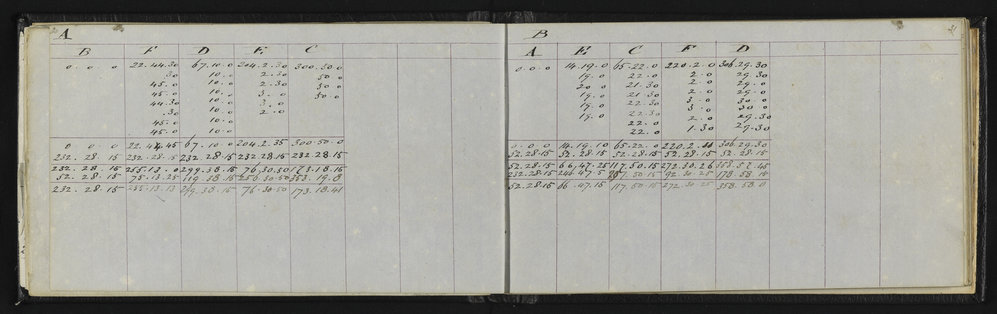 A
B F D E C
0 . 0 . 0 22.44.30 67.10.0 204.2.30 300.50.0
30 10.0 2.30 50.0
45.0 10.0 2.30 50.0
45.0 10.0 3.0 50.0
44.30 10.0 3.0
.30 10.0 2.0
45.0 10.0
45.0 10.0
0 0 0 22.44.45 67.10.0 204.2.35 300.50.0
232.28.15 232.28.15 232.28.15 232.28.15 232.28.15
232.28.15 255.13.0 299.38.15 76.30.50 173.18.15
52.28.15 75.13.25 119.38.15 256.30.50 353.19.8
232.28.15 255.13.13 299.38.15 76.30.50 173.18.41
B
A E C F D
0.0.0 14.19.0 65.22.0 220.2.0 306.29.30
19.0 22.0 2.0 29.30
20.0 21.30 2.0 29.0
19.0 21.30 2.0 29.0
19.0 22.30 3.0 30.0
19.0 22.30 3.0 30.0
22.0 2.0 29.30
22.0 1.30 29.30
0.0.0 14.19.10 65.22.0 220.2.11 306.29.30
52.28.15 52.28.15 52.28.15 52.28.15 52.28.15
52.28.15 66.47.25 117.50.15 272.30.26 358.57.45
232.28.15 246.47.5 297.50.15 92.30.25 178.58.15
52.28.15 66.47.15 117.50.15 272.30.25 358.58.0